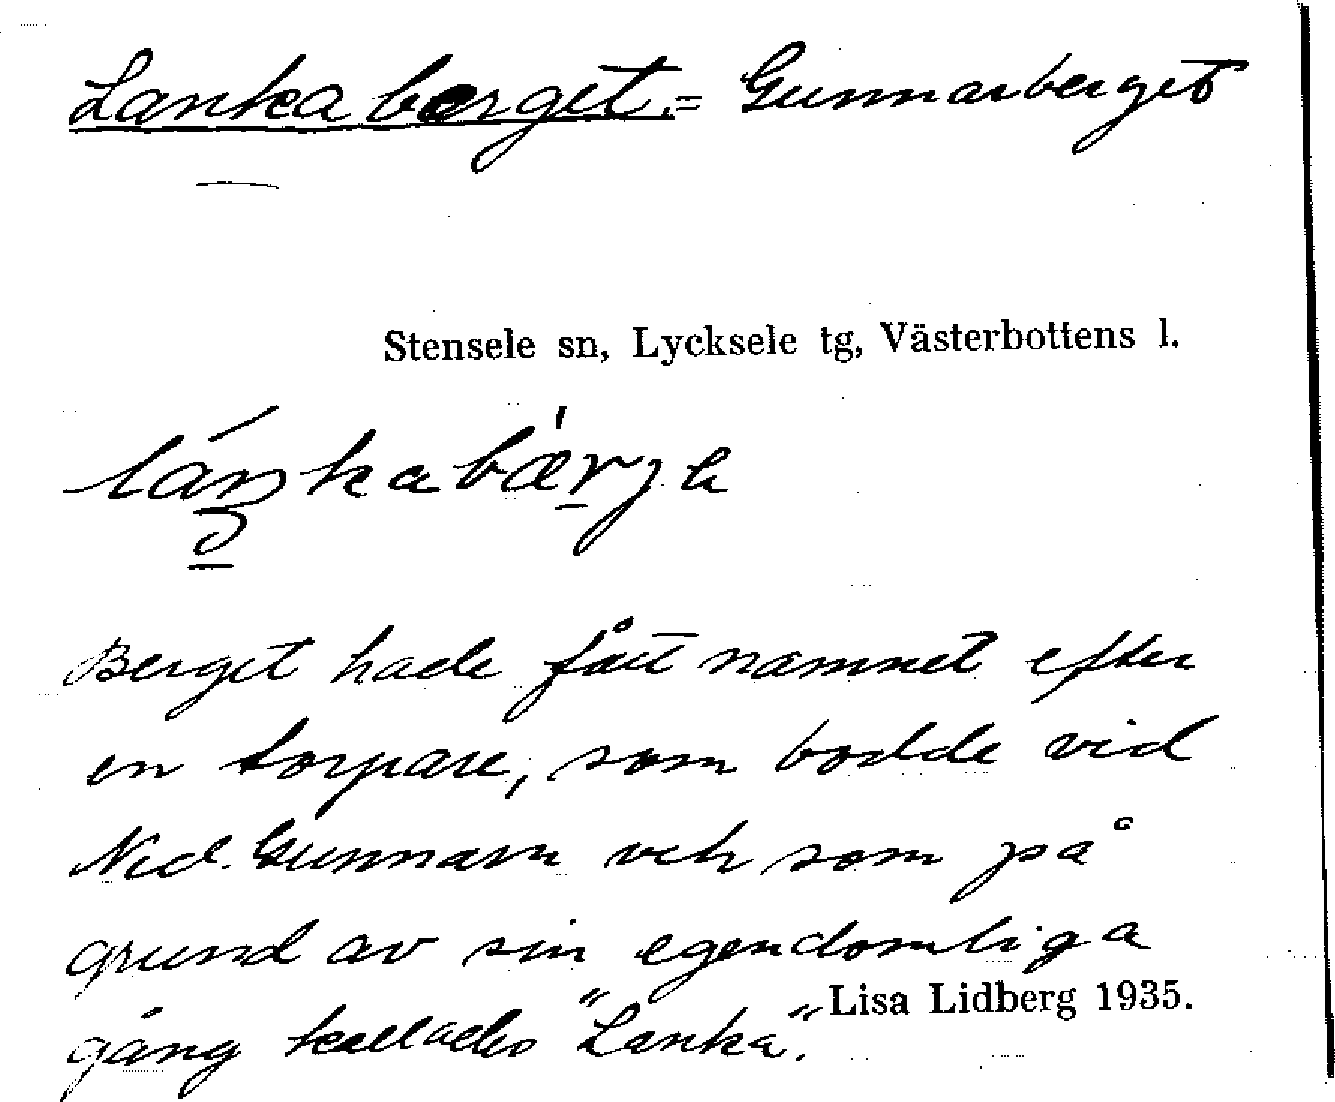 Lankaberget. = Gunnarberget
Stensele sn, Lycksele tg, Västerbottens l.
láŋkabæṟja
Berget hade fått namnet efter
en torpare, som bodde vid
Ned. Gunnarn och som på
grund av sin egendomliga
gång kallades "Lanka".
Lisa Lidberg 1935.